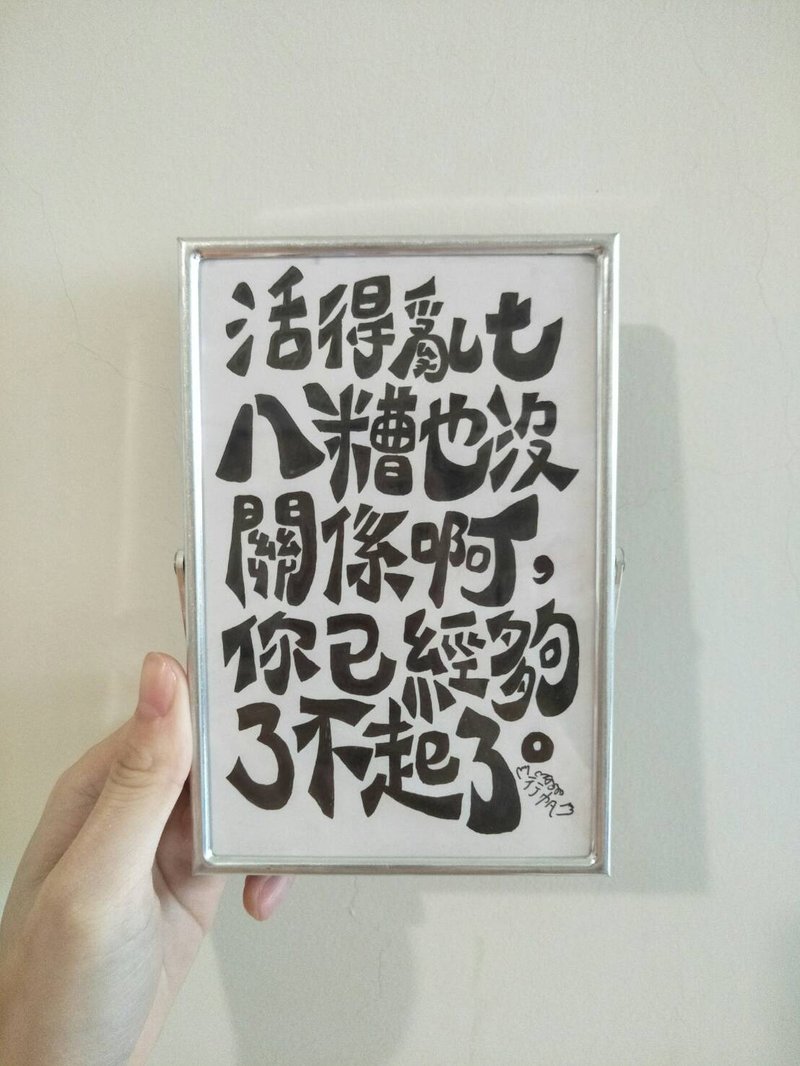 活得亂七
八糟也沒
關係啊，
你已經夠
了不起了。